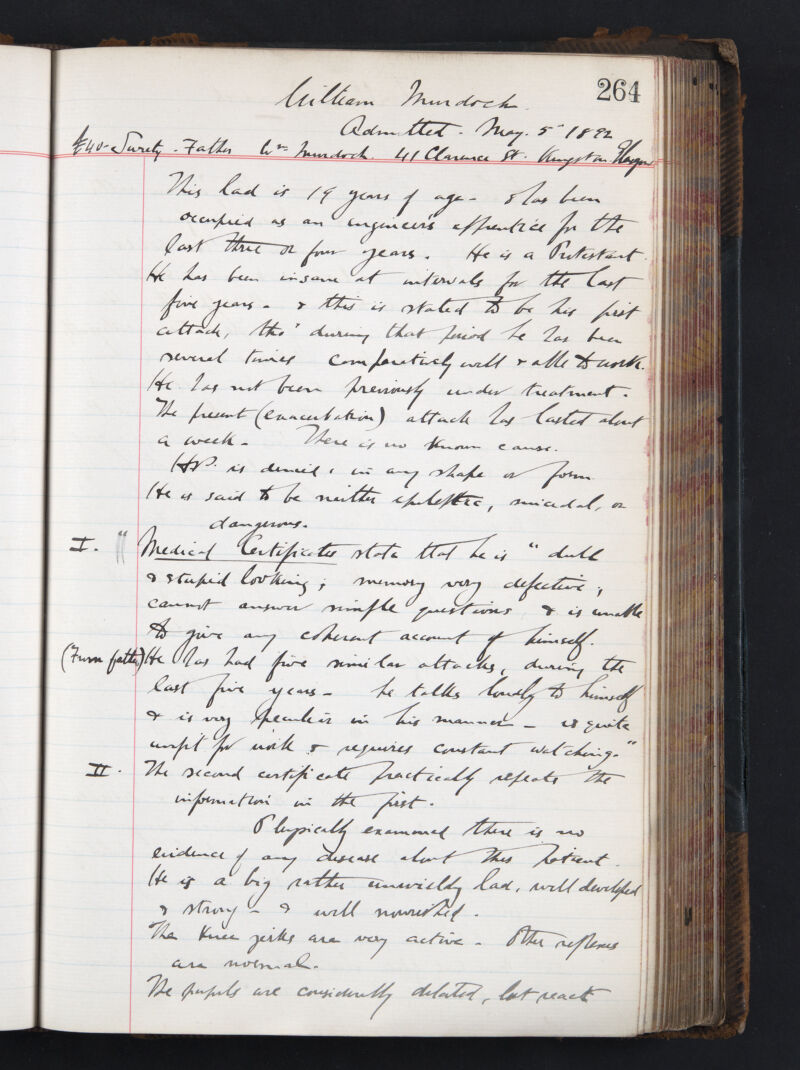 264
William Murdoch.
Admitted - May. 5 1892
£40 - Surety - Father Wm Murdoch. 41 Clarence St. Kingston Glasgow
This lad is 19 years of age - & has been
occupied as an engineer's apprentice for the
last three or four years. He is a Protestant.
He has been insane at intervals for the last
five years - & this is stated to be his first
attack, tho' during that period he has been
several times comparatively well & able to work.
He has not been previously under treatment.
The present (exacerbation) attack has lasted about
a week - There is no known cause.
H.P. is denied, in any shape or form
He is said to be neither epileptic, suicidal, or
dangerous.
I. " Medical Certificates state that he is "dull
& stupid looking; memory very defective;
cannot answer simple questions, & is unable
to give any coherent account of himself.
(From father) He has had five similar attacks, during the
last five years - he talks loudly to himself
& is very peculiar in his manner - is quite
unfit for work & requires constant watching."
II. The second certificate practically repeats the
information in the first.
Physically examined there is no
evidence of any disease about this patient.
He is a big rather unwieldy lad, well developed
& strong - & well nourished.
The knee jerks are very active - Other reflexes
are normal.
The pupils are considerably dilated, but react